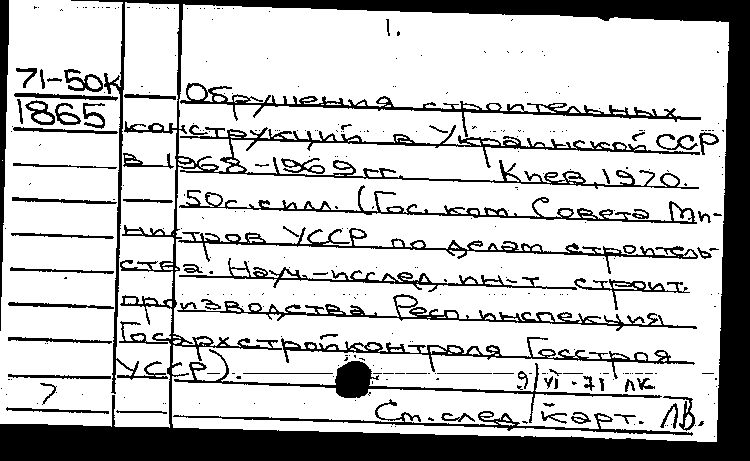 1.
71-50К
1865
Обрушения строительных
конструкций в Украинской ССР
в 1968-1969 гг. Киев, 1970.
50 с. с илл. (Гос. ком. Совета Ми-
нистров УССР по делам строитель-
ства. Науч.-исслед. ин-т строит.
производства. Респ. инспекция
Госархстройконтроля Госстроя
УССР).
9/VI-71 ЛК
7
См. след. карт. ЛВ.